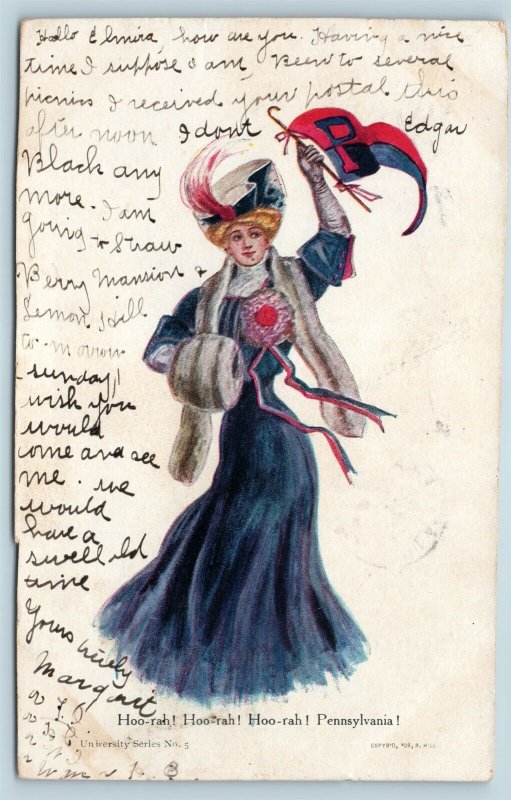 Hello Elmira, how are you. Having a nice
time I suppose I am, Been to several
picnics I received your postal this
after noon I dont Edgar
Black any
more. I am
going to Straw
Berry Mansion &
Lemon Hill
to-morrow
sunday,
wish you
would
come and see
me. we
would
have a
swell old
time
Yours truly
Margaret
P
Hoo-rah! Hoo-rah! Hoo-rah! Pennsylvania!
University Series No. 5
COPYR'D, '06, R. HILL